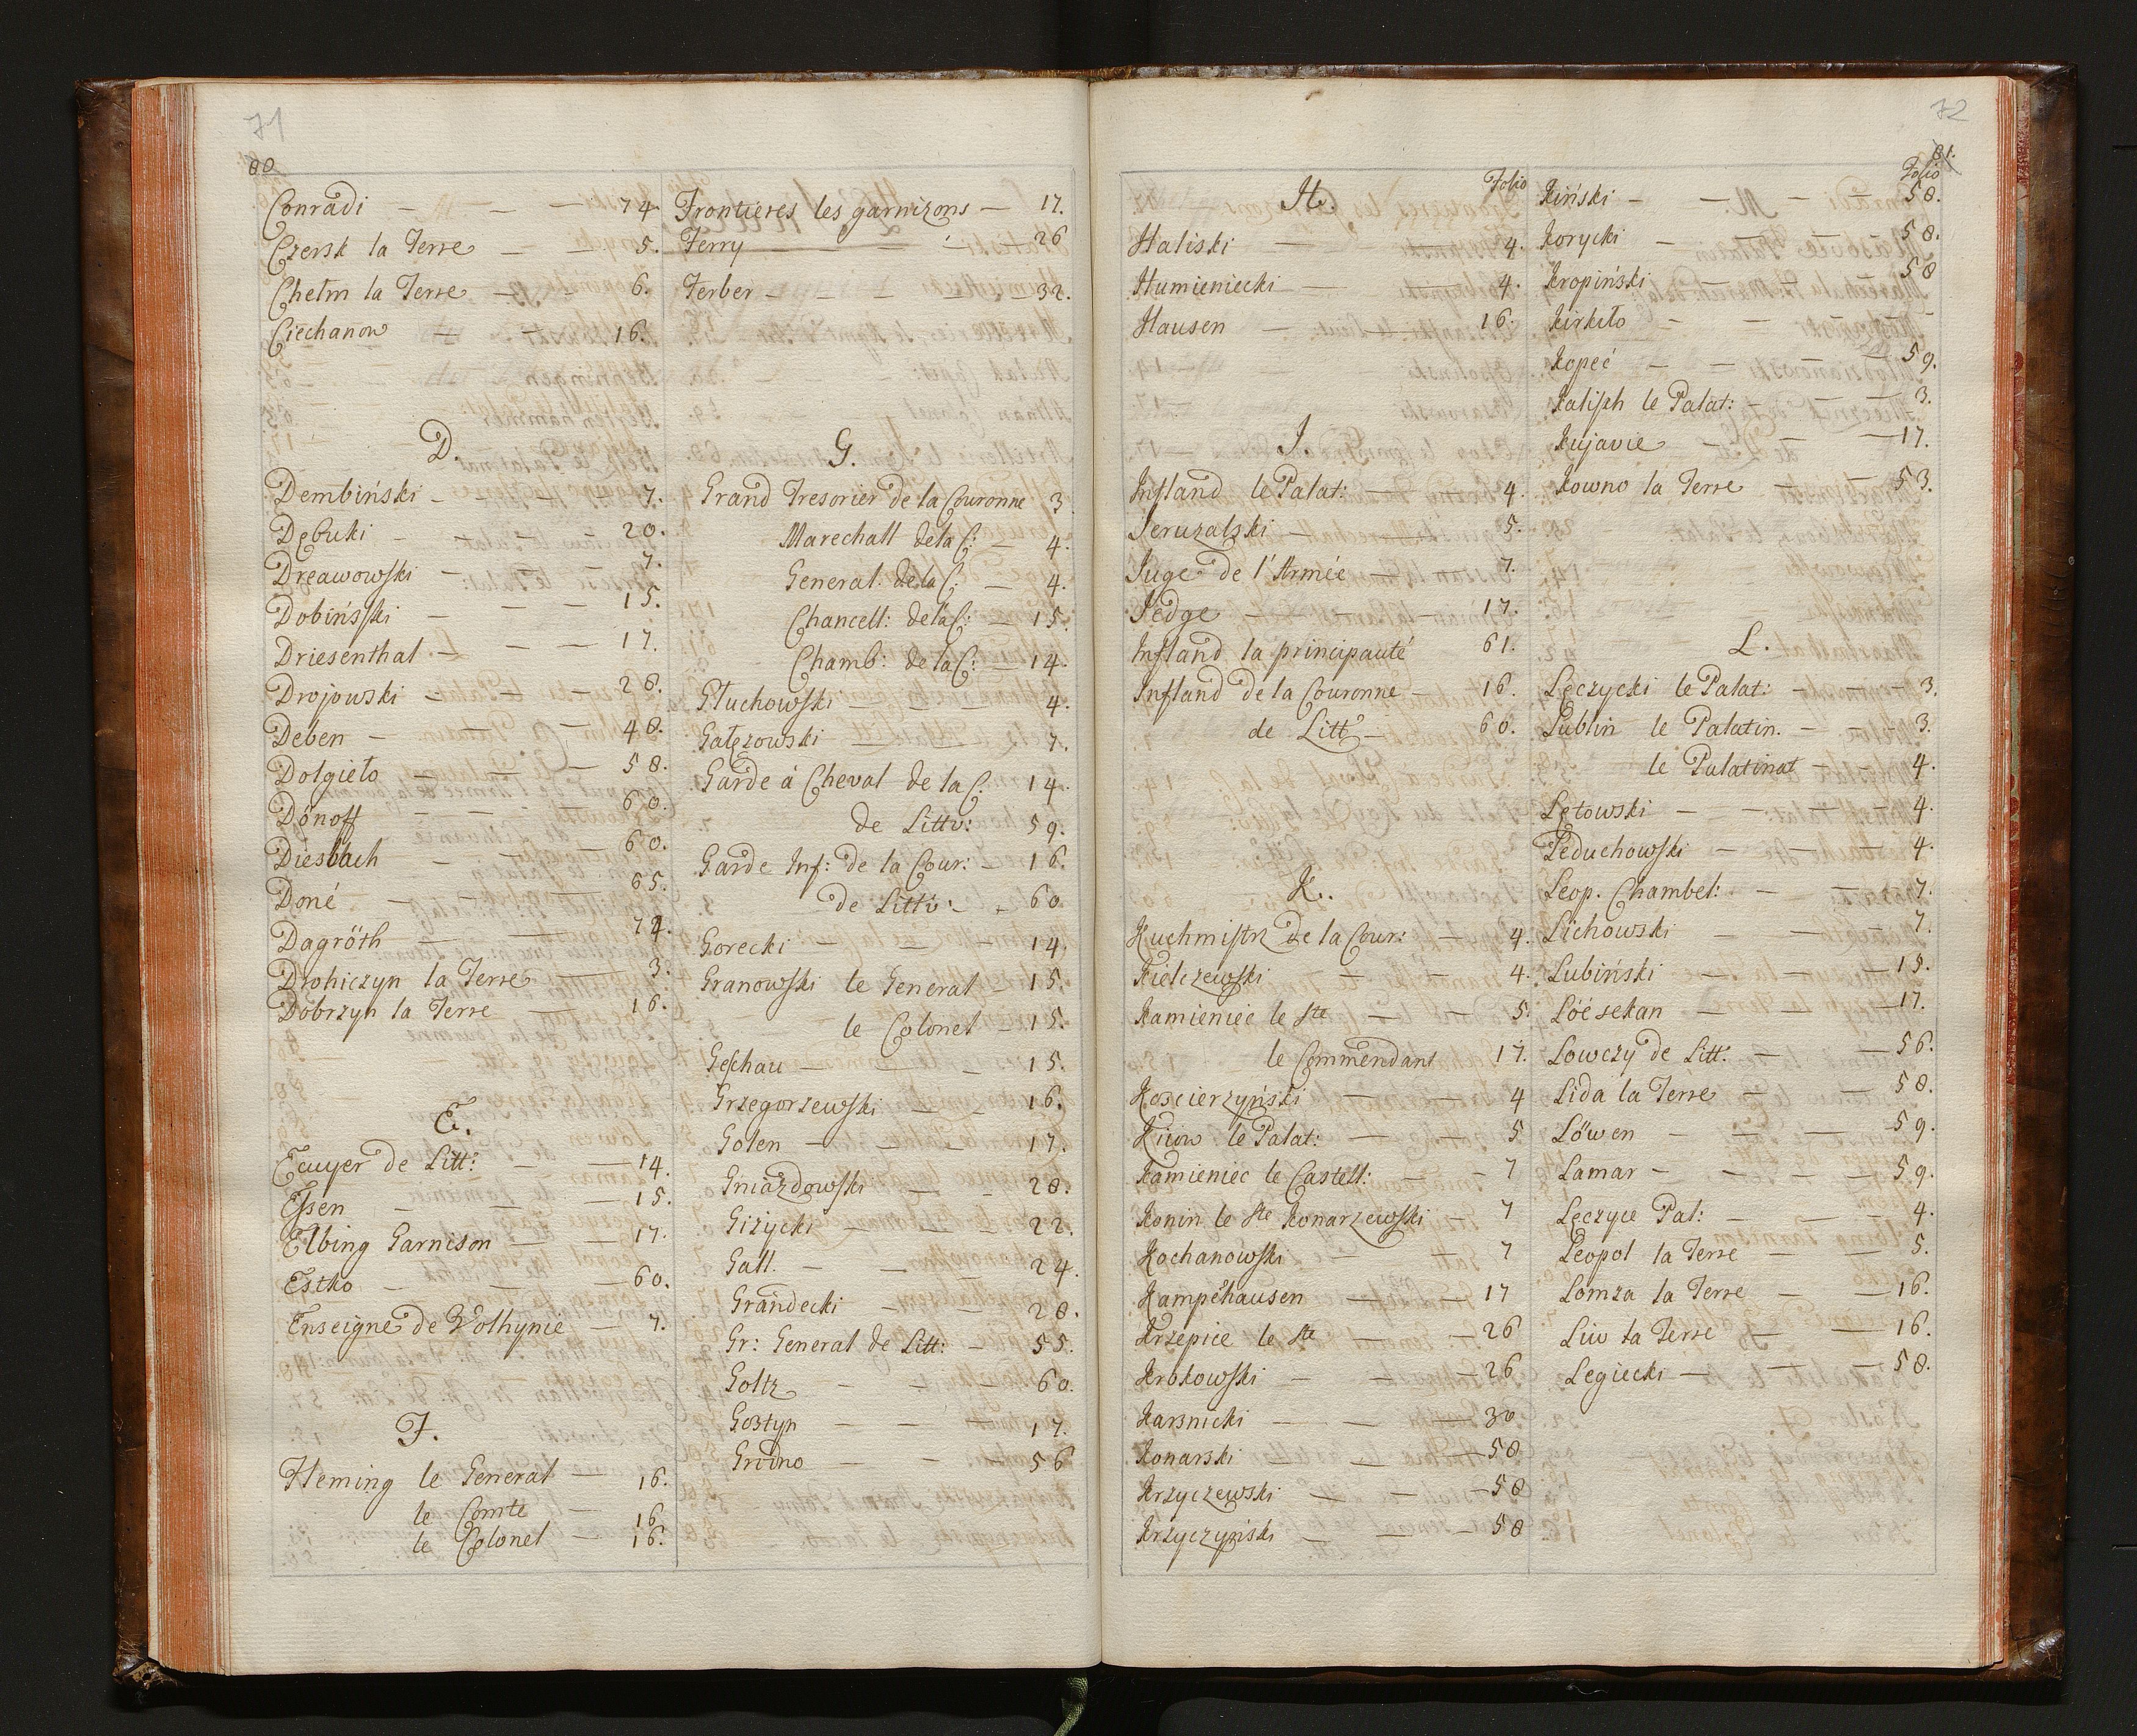 71
80
Conradi - - - 74
Czersk la Terre - - 5.
Chełm la Terre - - 6.
Ciechanow - - 16.
D.
Dembiński - - - - 7.
Dębuki - - - - 20.
Dreawowski - - - 7.
Dobińsski - - - - 15.
Driesenthal - - - 17.
Drojowski - - - 28.
Deben - - - 48.
Dolgieło - - - 58.
Dönoff - - - 60.
Diesbach - - - 60.
Doné - - - 65.
Dagröth - - 74.
Drohiczyn la Terre - 3.
Dobrzyn la Terre - 16.
E.
Ecuyer de Litt: - - 14.
Essen - - - 15.
Elbing Garnison - - 17.
Estko - - - 60.
Enseigne de Volhynie - 7.
F.
Fleming le General - 16.
le Comte - 16
le Colonel - 16.
Frontieres les garnizons - 17.
Ferry - - 26
Ferber - - - - - 32.
G.
Grand Tresorier de la Couronne 3
Marechall de la C: - 4.
General de la C: - 4.
Chancell: de la C: - 15.
Chamb: de la C: - 14.
Głuchowski - - - 4.
Gałęzowski - - - 7.
Garde à Cheval de la C. 14.
de Littv: 59.
Garde Inf: de la Cour: - 16.
de Littv: - 60
Gorecki - - - 14.
Granowski le General - 15.
le Colonel - 15.
Geschau - - - 15.
Grzegorzewski - - 16.
Golen - - - 17.
Gniazdowski - - 28.
Giżycki - - - 22.
Gall. - - - 24.
Grandecki - - - 28.
Gr: General de Litt: - 55.
Goltz - - - 60.
Gostyn - - - 17.
Grodno - - - 56
72
81.
Folio
H.
Haliski - - - 4.
Humieniecki - - 4.
Hausen - - 16.
I.
Infland le Palat: - - 4.
Jeruzalski - - - 5.
Juge de l'Armée - - 7.
Jedge - - - 17.
Infland la principauté 61.
Infland de la Couronne - 16.
de Litt: - 60.
K.
Kuchmistrz de la Cour: - 4.
Kielczewski - - 4.
Kamieniec le Ste - - 5.
le Commendant 17.
Koscierzyński - - 4
Kiiow le Palat: - - 5
Kamieniec le Castell: - - 7
Konin le Ste Konarzewski - 7
Kochanowski - - 7
Kampenhausen - - 17
Krzepice le Ste - - 26
Krokowski - - - 26
Karsnicki - - - 30
Konarski - - - 58
Krzyczewski - - - 58
Krzyczyński - - - 58
Folio
Kiński - - - - 58.
Korycki - - - - 58.
Kropiński - - - 58
Kirkiło - - - -
Kopeć - - - - 59.
Kalish le Palat: - - - 3.
Kujavie - - - 17.
Kowno la Terre - - 53.
L.
Lęczycki le Palat: - - - 3.
Lublin le Palatin. - - 3.
le Palatinat - - 4.
Lętowski - - - - 4.
Leduchowski - - - 4.
Leop. Chambel: - - - 7.
Lichowski - - - 7.
Lubiński - - - 15.
Löésekan - - - 17.
Lowczy de Litt: - - 56.
Lida la Terre - - 58.
Löwen - - - 59.
Lamar - - - - 59.
Lęczyce Pal: - - - 4.
Leopol la Terre - - 5.
Lomza la Terre - - 16.
Liw la Terre - - 16.
Legiecki - - - 58.